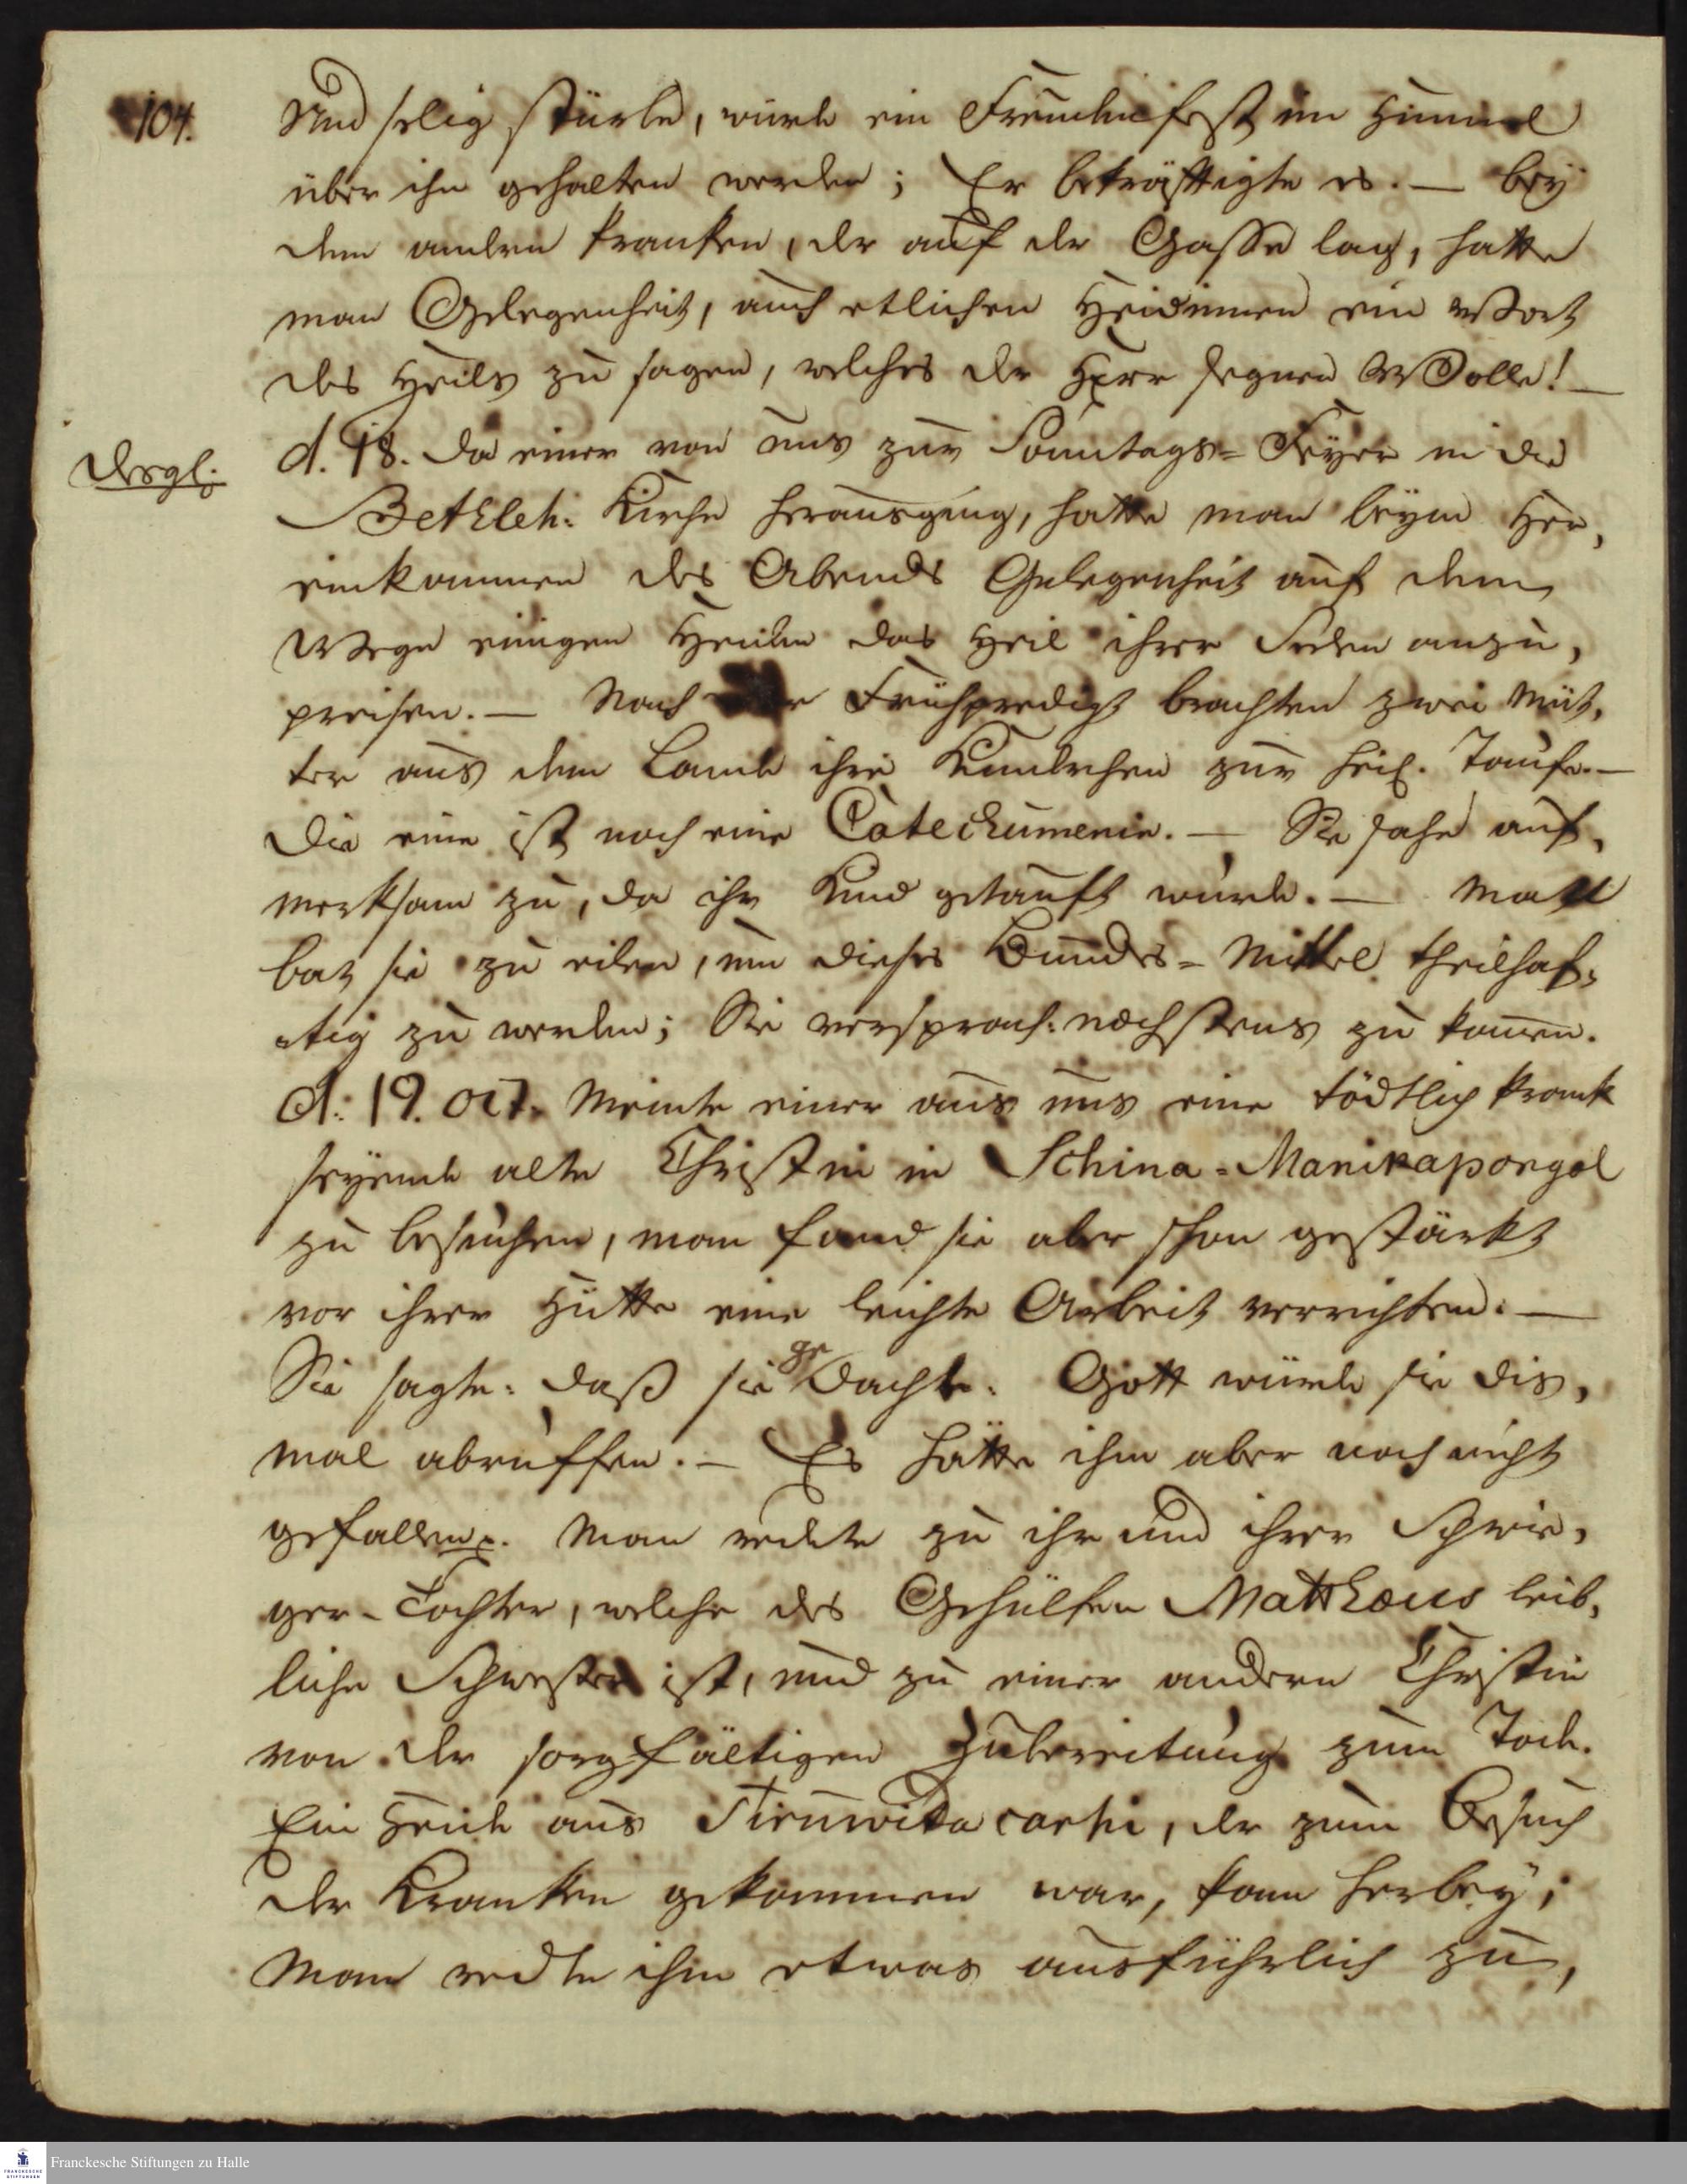 104.
Und selig stürbe, würde ein Freudenfest im Himmel
über ihn gehalten werden; Er bekräfftigte es. — bey
dem andern Kranken, der auf der Gasse lag, hatte
man Gelegenheit, auch etlichen Heidinnen ein Wort
des Heils zu sagen, welches der Herr segnen Wolle! —
Desgl:
d. 18. Da einer von uns zur Sonntags-Feyer in die
Bethleh: Kirche herausging, hatte man beym Her,
einkommen des Abends Gelegenheit auf dem
Wege einigen Heiden das Heil ihrer Seelen anzu,
preisen. — Nach der Frühpredigt brachten zwei Müt,
ter aus dem Lande ihre Kinderchen zur heil. Taufe. —
Die eine ist noch eine Catechumenin. — Sie sahe auf,
merksam zu, da ihr Kind getauft wurde. — Man
bat sie zu eilen, um dieses Bundes-Mittel theilhaf,
tig zu werden; Sie versprach: nächstens zu kommen.
d: 19. Oct. Meinte einer aus uns eine tödtlich krank
seyende alte Christin in Schina-Manikapongol
zu besuchen, man fand sie aber schon gestärkt
vor ihrer Hütte eine leichte Arbeit verrichten. —
Sie sagte: daß sie gedachte: Gott würde sie dis,
mal abruffen. — Es hätte ihm aber noch nicht
gefallen. Man redete zu ihr und ihrer Schwie,
ger-Tochter, welche des Gehülfen Matthäus leib,
liche Schwester ist, und zu einer andern Christin
von der sorgfältigen Zubereitung zum Tode.
Ein Heide aus Tiruwidacarhi, der zum Besuch
der Kranken gekommen war, kam herbey;
Man redte ihm etwas ausführlich zu,
Franckesche Stiftungen zu Halle